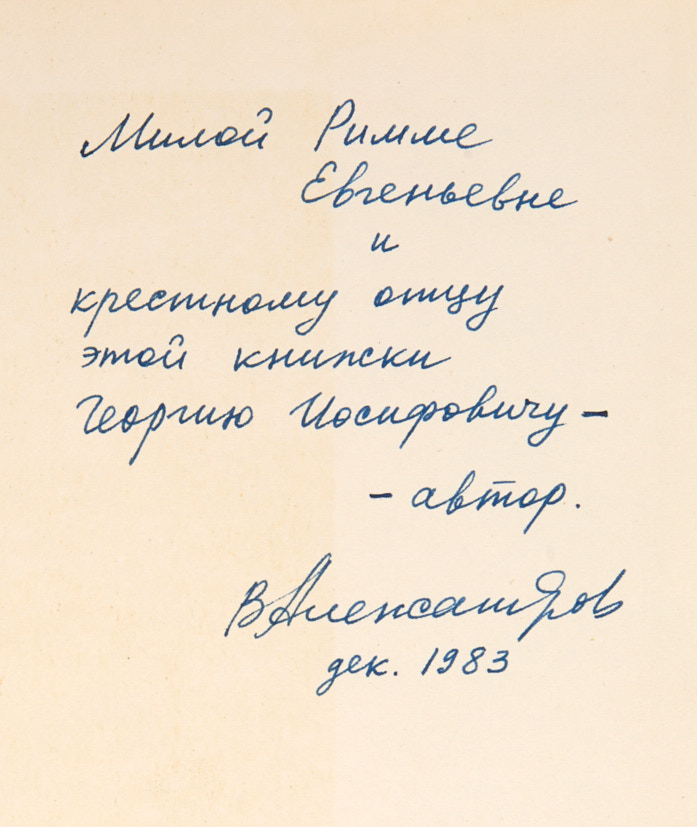 Милой Римме
Евгеньевне
и
крестному отцу
этой книжки
Георгию Иосифовичу —
— автор.
В Александров
дек. 1983